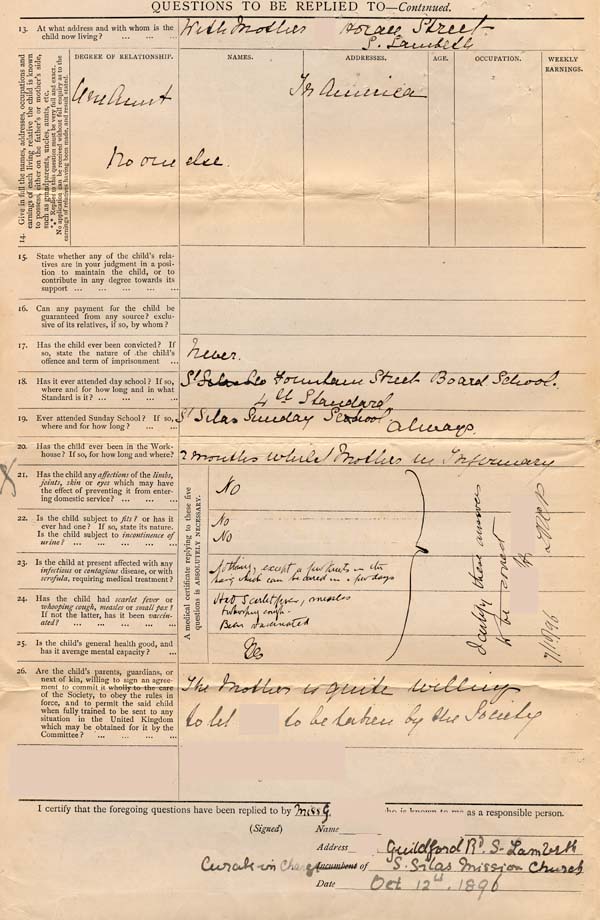 QUESTIONS TO BE REPLIED TO—Continued.
13. At what address and with whom is the
child now living? ... ... ...
With Mother Horace Street
S. Lambeth
14. Give in full the names, addresses, occupations and
earnings of each living relative the child is known
to possess, either on the father's or mother's side,
such as grandparents, uncles, aunts, etc.
*** Replies to this question must be very full and exact.
No application can be received without full enquiry as to the
earnings of relatives having been made, and result stated.
DEGREE OF RELATIONSHIP. NAMES. ADDRESSES. AGE. OCCUPATION. WEEKLY
EARNINGS.
One Aunt In America
No one else.
15. State whether any of the child's rela-
tives are in your judgment in a posi-
tion to maintain the child, or to
contribute in any degree towards its
support ... ... ... ...
16. Can any payment for the child be
guaranteed from any source? exclu-
sive of its relatives, if so, by whom?
17. Has the child ever been convicted? If
so, state the nature of the child's
offence and term of imprisonment ...
Never.
18. Has it ever attended day school? If so,
where and for how long and in what
Standard is it? ... ... ...
St Silas Fountain Street Board School.
4th Standard
19. Ever attended Sunday School? If so,
where and for how long? ... ...
St Silas Sunday School always.
20. Has the child ever been in the Work-
house? If so, for how long and where?
2 months whilst Mother in Infirmary
21. Has the child any affections of the limbs,
joints, skin or eyes which may have
the effect of preventing it from enter-
ing domestic service? ... ... ...
A medical certificate replying to these five
questions is ABSOLUTELY NECESSARY.
No
22. Is the child subject to fits? or has it
ever had one? If so, state its nature.
Is the child subject to incontinence of
urine? ... ... ... ...
No
No
23. Is the child at present affected with any
infectious or contagious disease, or with
scrofula, requiring medical treatment?
Nothing, except a few nits in the
hair, which can be cured in a few days
24. Has the child had scarlet fever or
whooping cough, measles or small pox?
If not the latter, has it been vaccin-
ated? ... ... ... ...
Had Scarlet fever, measles
+ whooping cough.
Been vaccinated
25. Is the child's general health good, and
has it average mental capacity? ...
Yes
I certify these answers
to be correct
7/10/96
26. Are the child's parents, guardians, or
next of kin, willing to sign an agree-
ment to commit it wholly to the care
of the Society, to obey the rules in
force, and to permit the said child
when fully trained to be sent to any
situation in the United Kingdom
which may be obtained for it by the
Committee? ... ... ... ...
The Mother is quite willing
to let to be taken by the Society
I certify that the foregoing questions have been replied to by Miss G. who is known to me as a responsible person.
(Signed) Name
Address Guildford Rd. S. Lambeth
Curate in Charge Incumbent of S. Silas Mission Church
Date Oct 12th. 1896